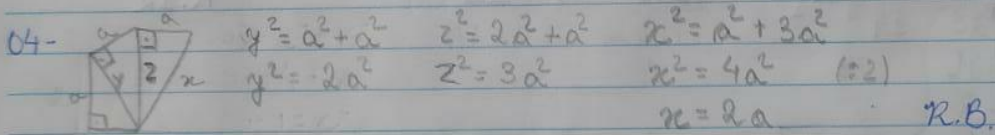 04- a a a y z x y² = a² + a² z² = 2a² + a² x² = a² + 3a²
y² = 2a² z² = 3a² x² = 4a² (:2)
x = 2a R.B.